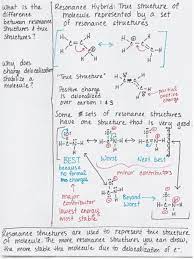 What is the
difference
between resonance
structures & true
structure?
Resonance Hybrid: True Structure of
molecule represented by a set
of resonance structures.
Why does
charge delocalization
stabilize a
molecule?
"True Structure"
Positive charge
is delocalized
over carbons 1 & 3
partial
positive
charge
Some sets of resonance structures
have one structure that is very good
BEST
because
no formal
charges
Worst
Next best
minor contributors
major
contributor
lowest energy
most stable
Beyond
Worst
Resonance structures are used to represent true structure
of molecule. The more resonance structures you can draw,
the more stable the molecule due to delocalization of e-.